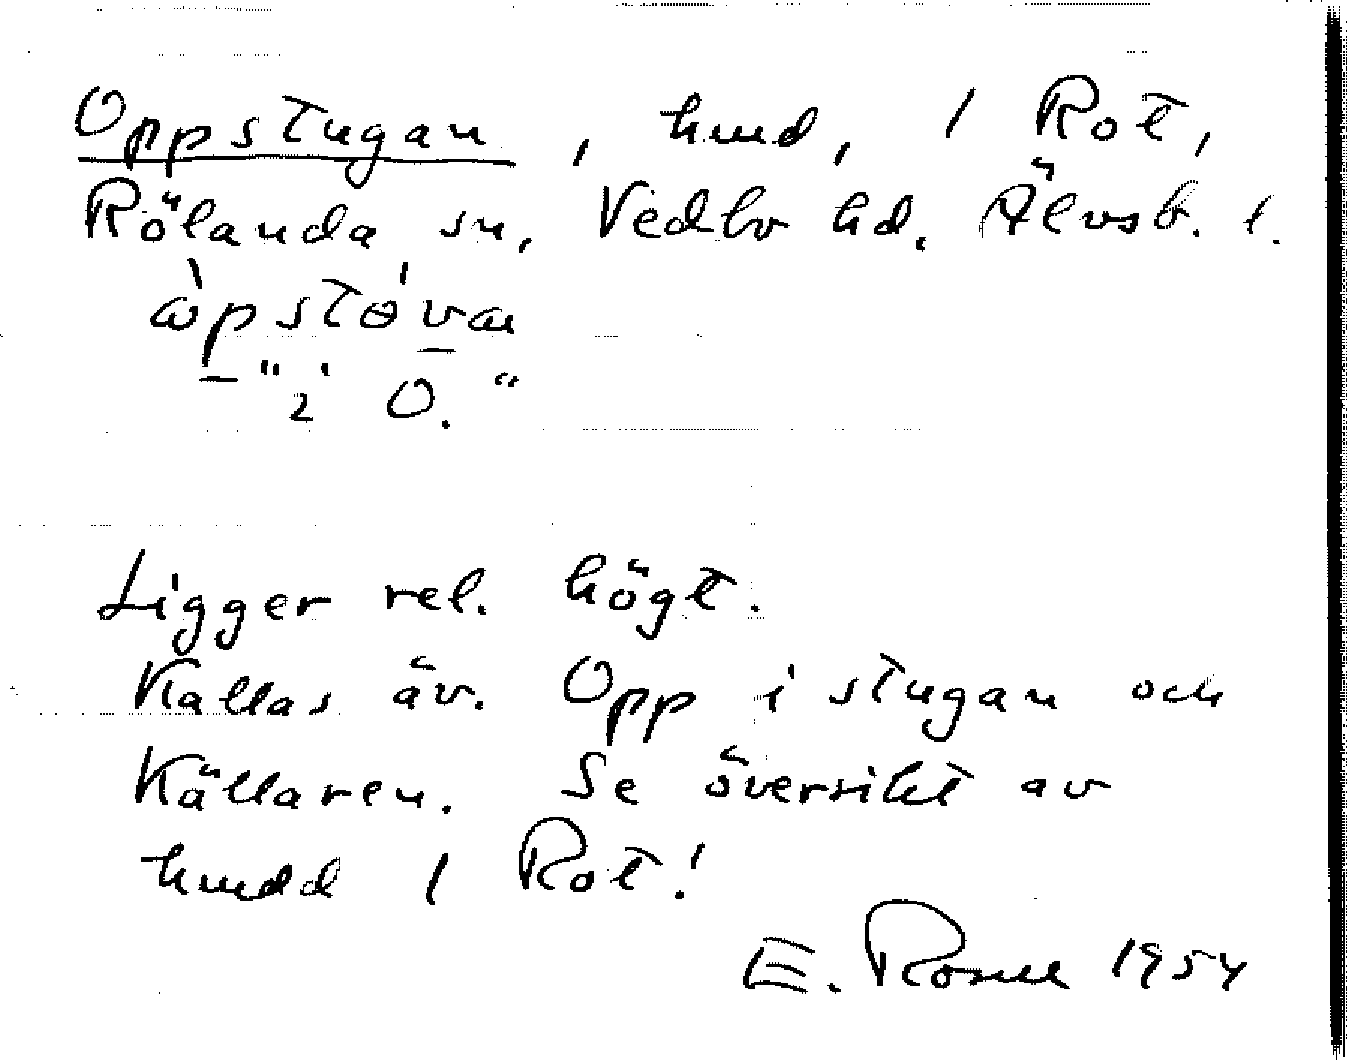 Oppstugan, hmd, 1 Rot,
Rölanda sn, Vedbo hd. Älvsb. l.
Ligger rel. högt.
Kallas äv. Opp i stugan och
Källaren. Se översikt av
hmdd 1 Rot!
E. 1954